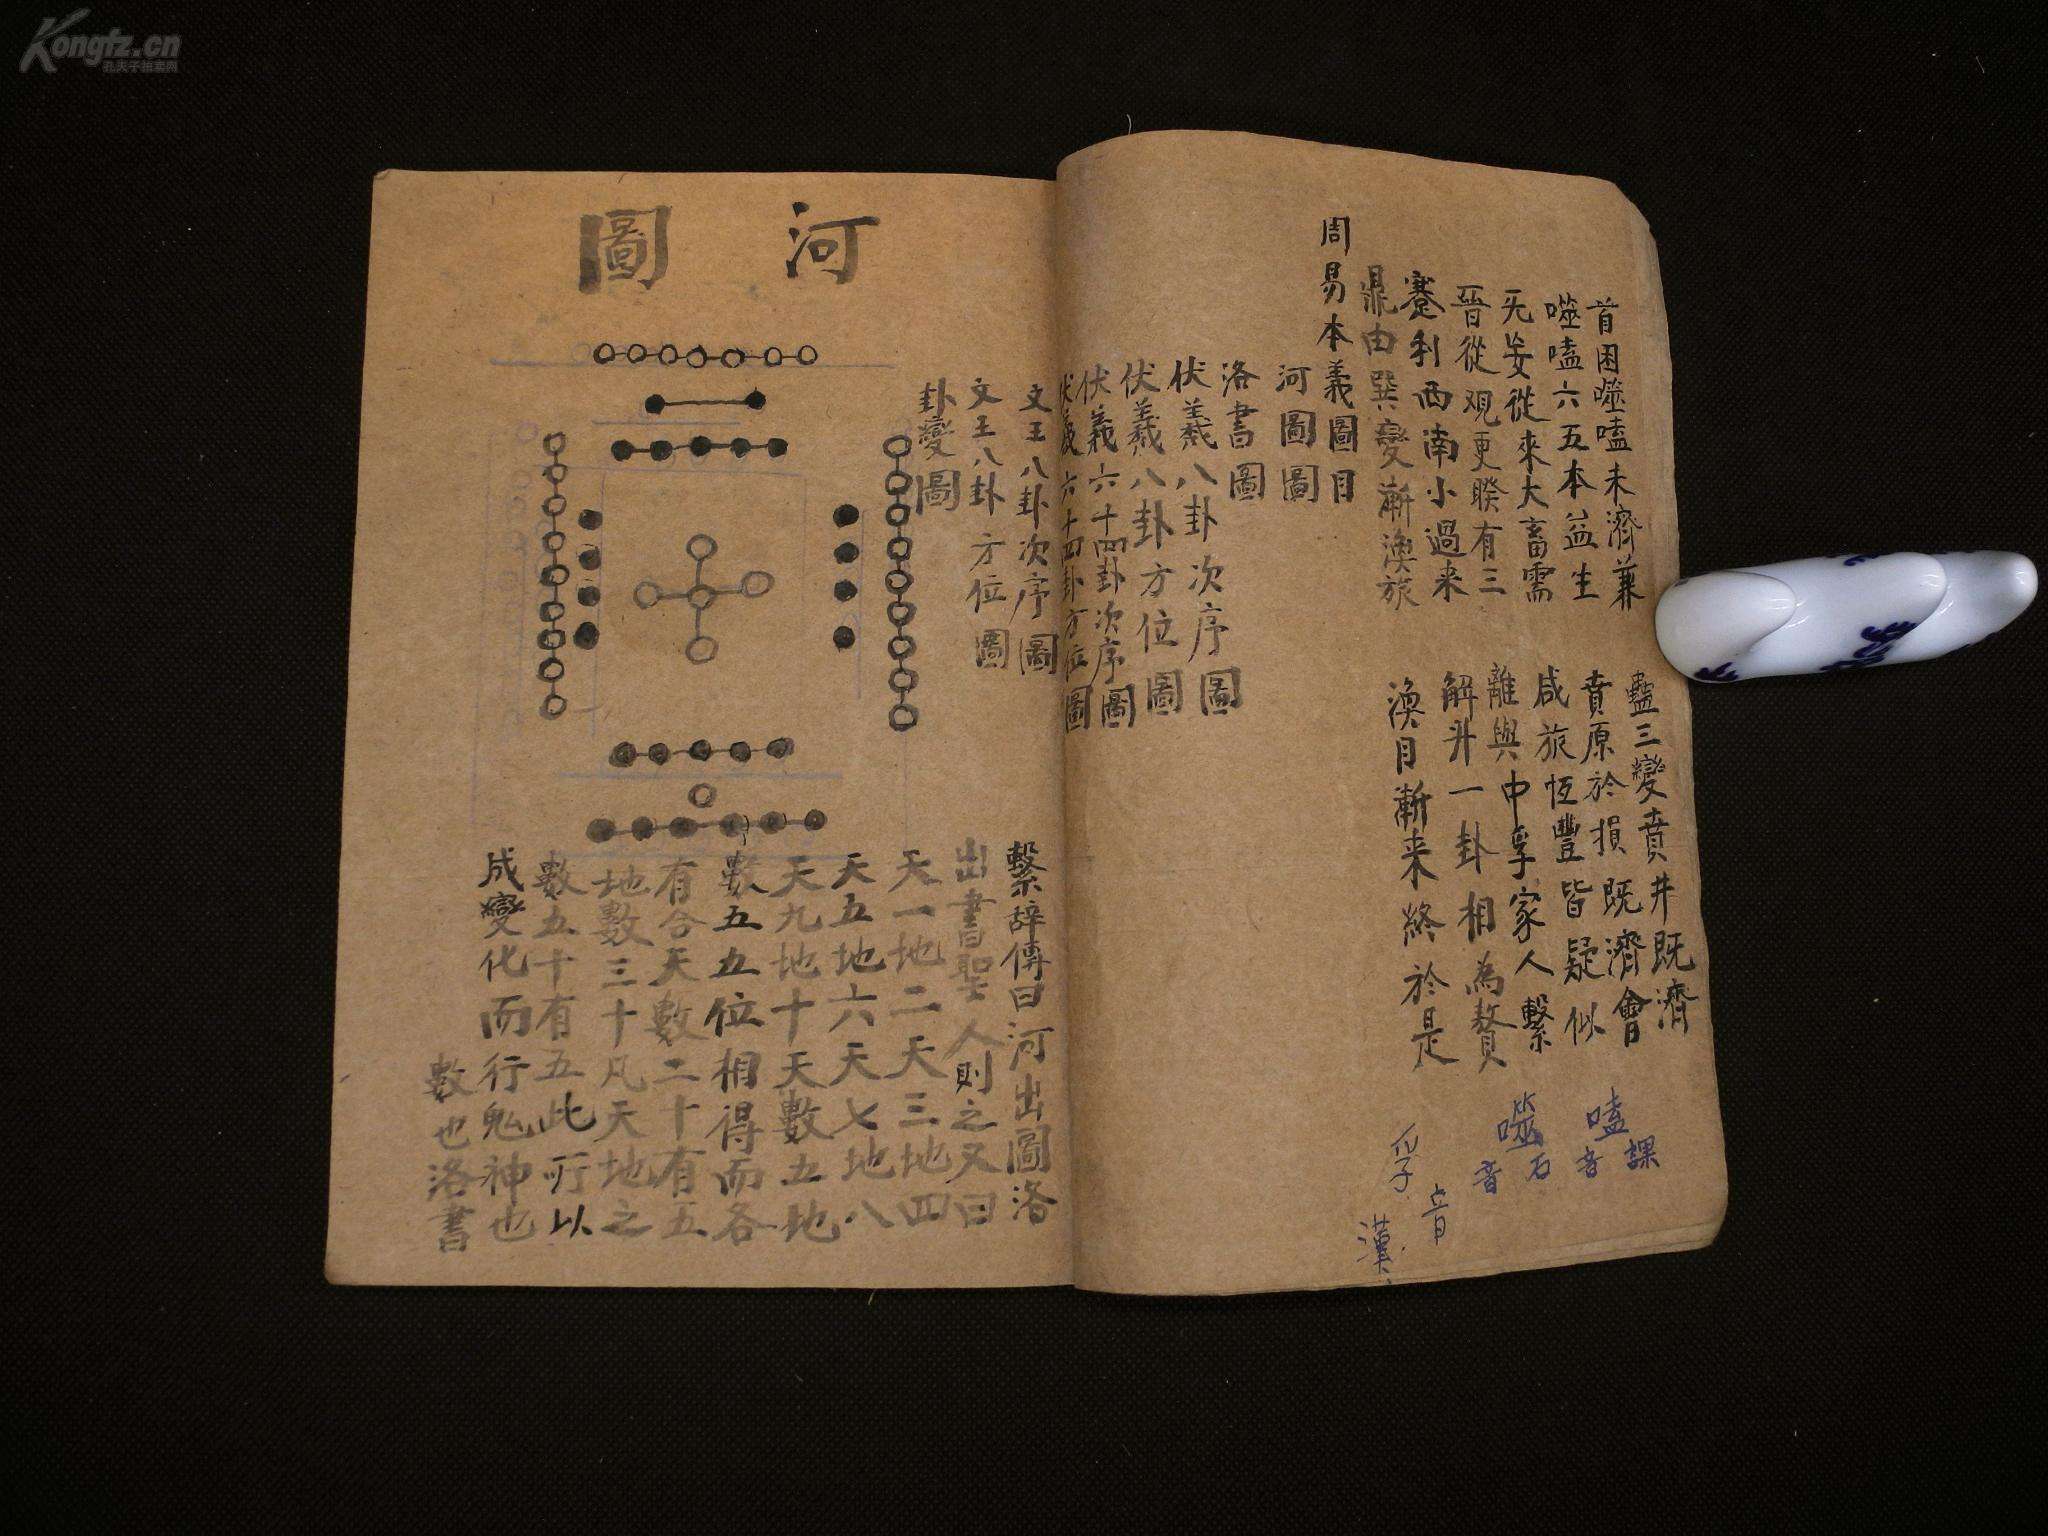 Kongfz.cn
孔夫子拍卖网
首困噬嗑未濟兼 蠱三變賁井既濟
噬嗑六五本益生 賁原於損既濟會
无妄從來大畜需 咸旅恆豐皆疑似
晉從观更睽有三 離與中孚家人繫
蹇利西南小過来 解升一卦相為贅
鼎由巽變漸渙旅 渙目漸来終於是
嗑
音課
噬
音石
孚
音
漢
周易本義圖目
河圖圖
洛書圖
伏羲八卦次序圖
伏羲八卦方位圖
伏羲六十四卦次序圖
伏羲六十四卦方位圖
文王八卦次序圖
文王八卦方位圖
卦變圖
河圖
繫辭傳曰河出圖洛
出書聖人則之又曰
天一地二天三地四
天五地六天七地八
天九地十天數五地
數五五位相得而各
有合天數二十有五
地數三十凡天地之
數五十有五此所以
成變化而行鬼神也
數也洛書